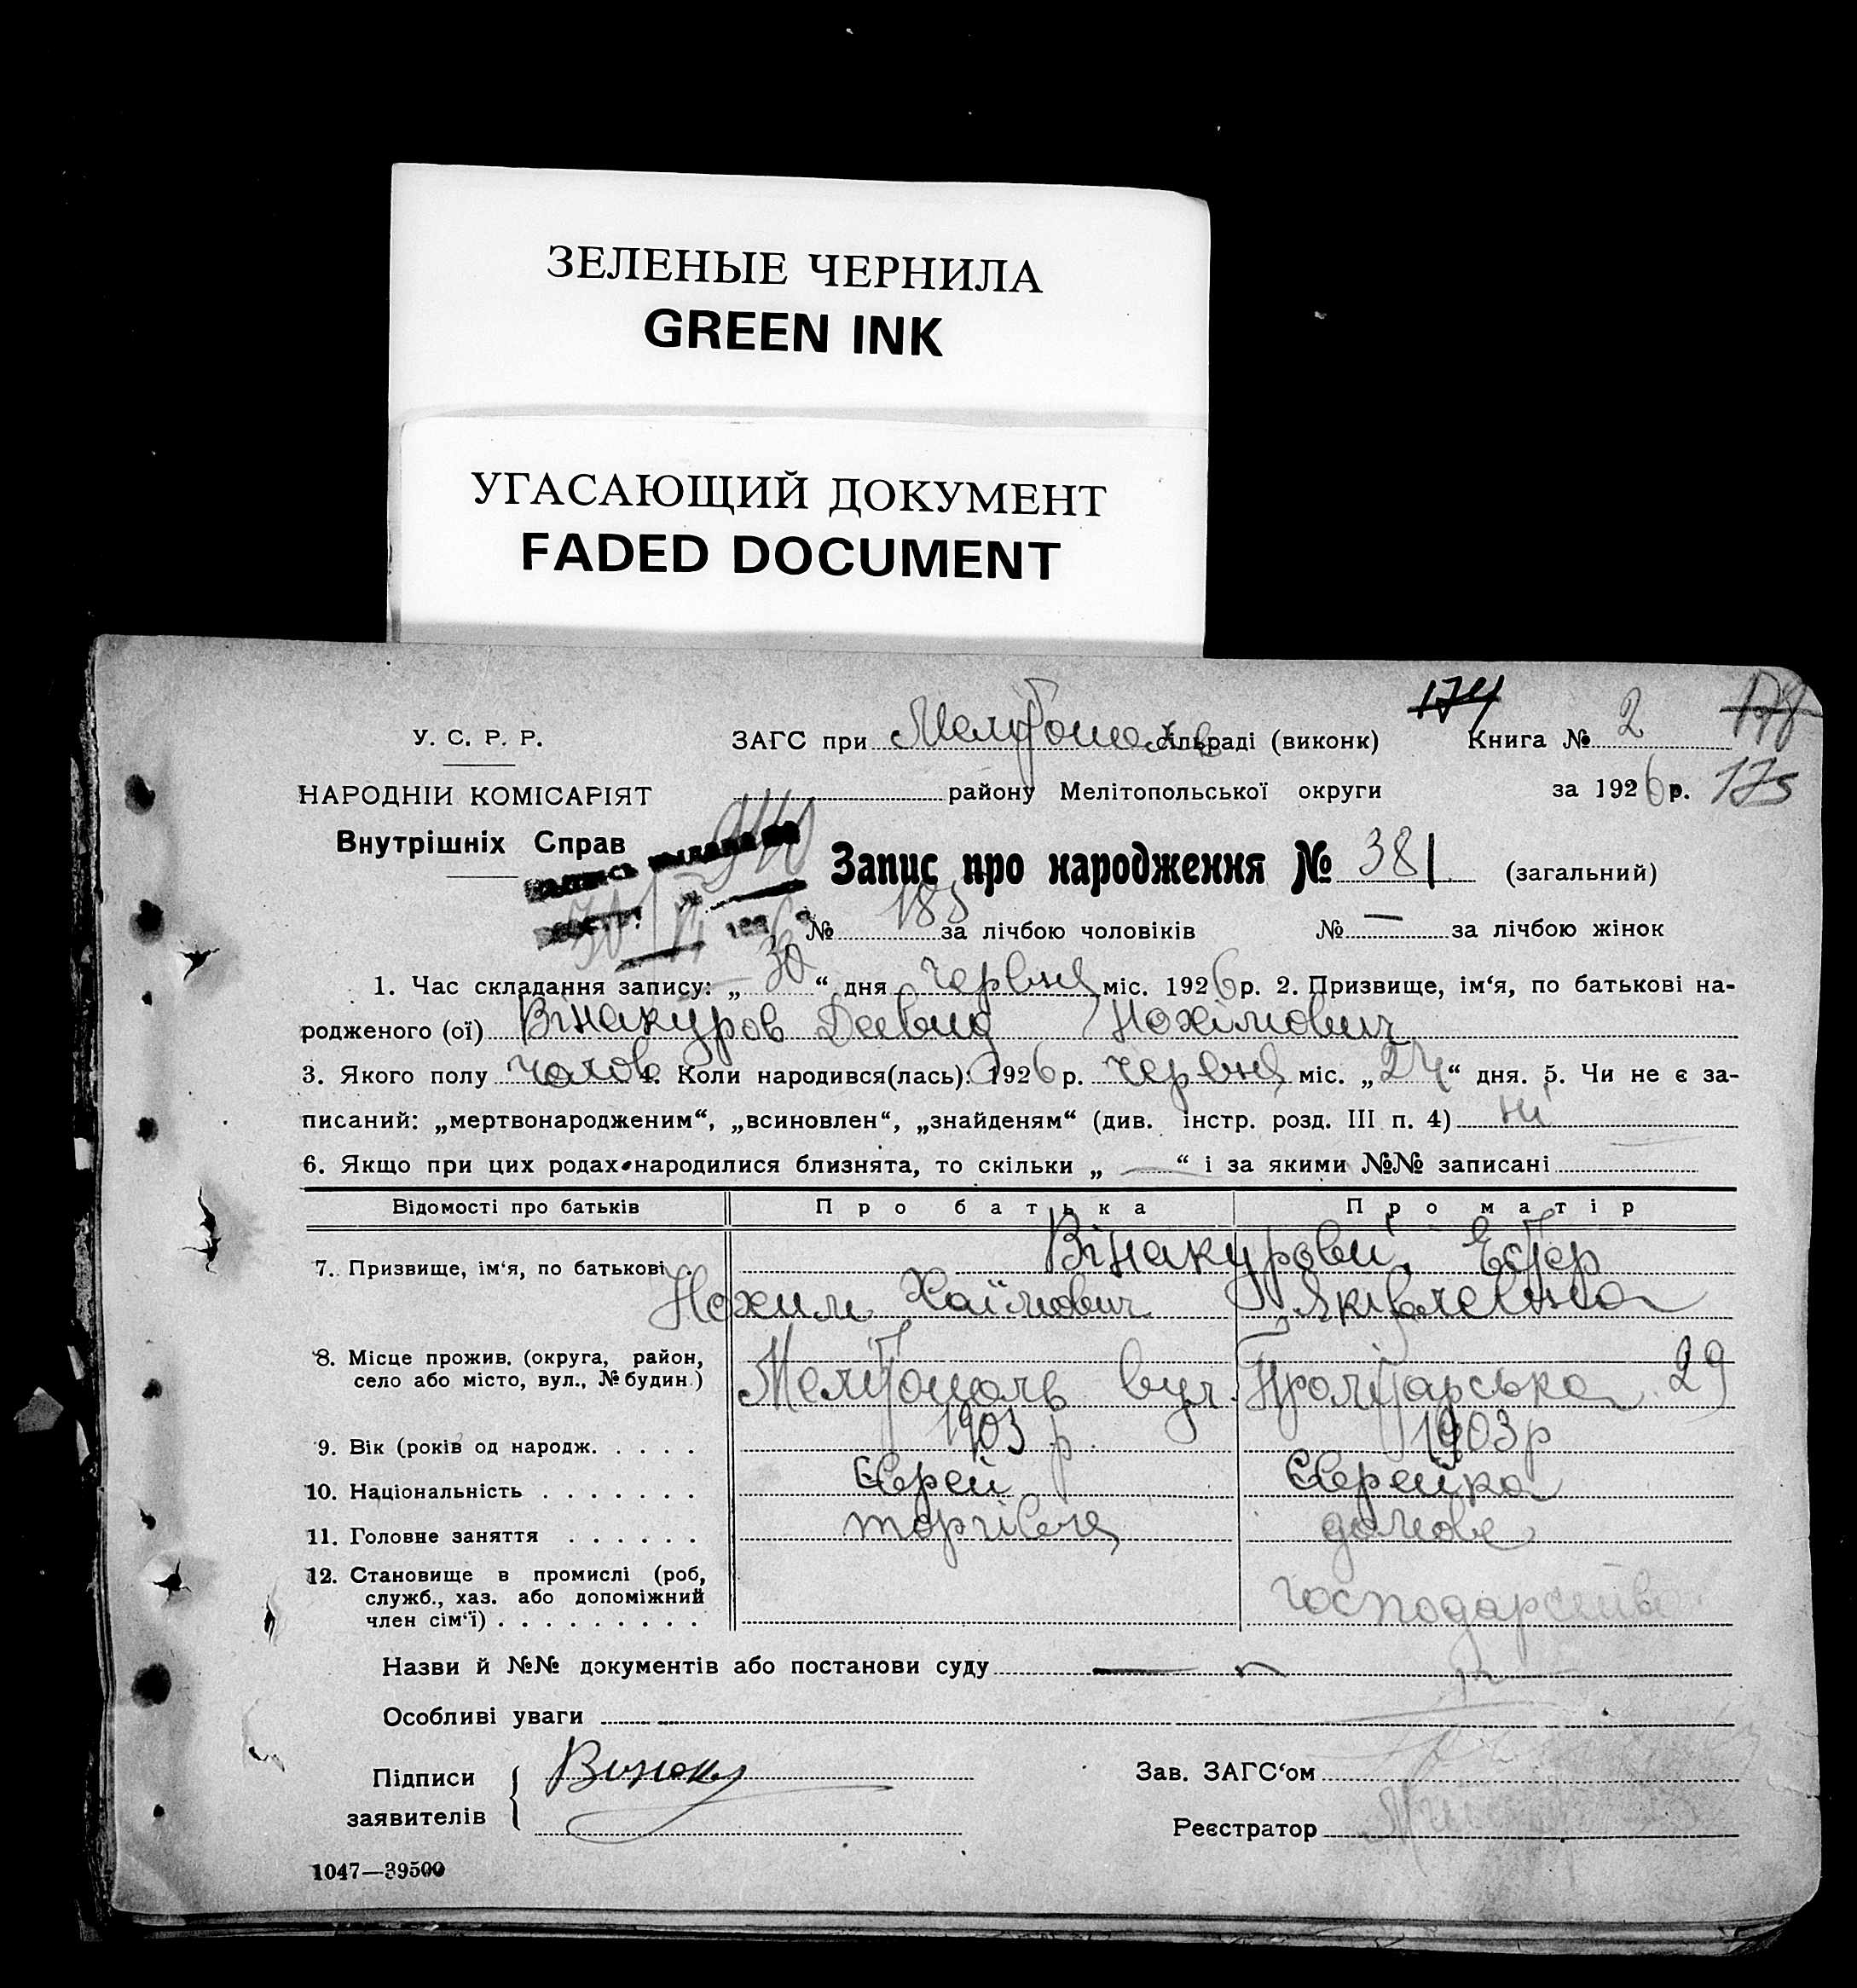 ЗЕЛЕНЫЕ ЧЕРНИЛА
GREEN INK
УГАСАЮЩИЙ ДОКУМЕНТ
FADED DOCUMENT
174 178
У. С. Р. Р. ЗАГС при раді (виконк) Книга № 2
НАРОДНІИ КОМІСАРІЯТ району Мелітопольської округи за 1926 р. 175
Внутрішніх Справ 940
Запис про народження № 381 (загальний)
30 192
№ 185 за лічбою чоловіків № — за лічбою жінок
1. Час складання запису: „ 30 “ дня червня міс. 1926 р. 2. Призвище, ім‘я, по батькові на-
родженого (ої) Вінакуров Давид Нохімович
3. Якого полу чолов 4. Коли народився(лась): 1926 р. червня міс. „24“ дня. 5. Чи не є за-
писаний: „мертвонародженим“, „всиновлен“, „знайденям“ (див. інстр. розд. III п. 4) ні
6. Якщо при цих родах народилися близнята, то скільки „ — “ і за якими №№ записані
Відомості про батьків Про батька Про матір
7. Призвище, ім‘я, по батькові . Вінакурови Естер
Нохим Хаїмович Яківлевна
8. Місце прожив. (округа, район, село або місто, вул., № будин.) Мелітополь вул. Пролітарська 29
9. Вік (років од народж. . . . . 1903 р. 1903 р
10. Національність . . . . . . . Єврей Єврейка
11. Головне заняття . . . . . . торгівля домове
12. Становище в промислі (роб, служб., хаз. або допоміжний член сім‘ї) . . . . . . . . . господарство
Назви й №№ документів або постанови суду —
Особливі уваги
Підписи заявителів { Винок
Зав. ЗАГС‘ом
Реєстратор
1047—39500